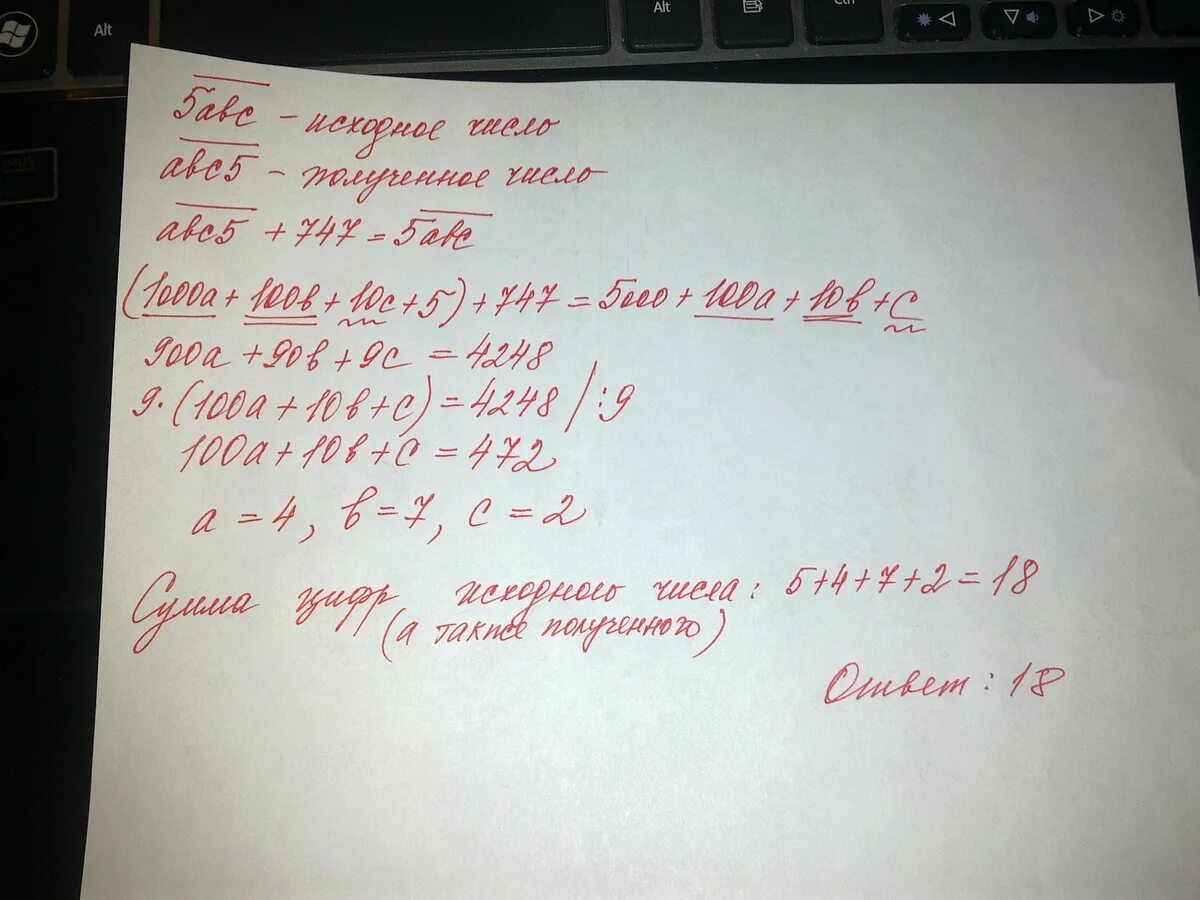 Alt
Alt
Ctrl
5авс – исходное число
авс5 – полученное число
авс5 + 747 = 5авс
(1000а + 100в + 10с + 5) + 747 = 5000 + 100а + 10в + с
900а + 90в + 9с = 4248
9·(100а + 10в + с) = 4248 / :9
100а + 10в + с = 472
а = 4, в = 7, с = 2
Сумма цифр исходного числа: 5+4+7+2=18
(а также полученного)
Ответ: 18